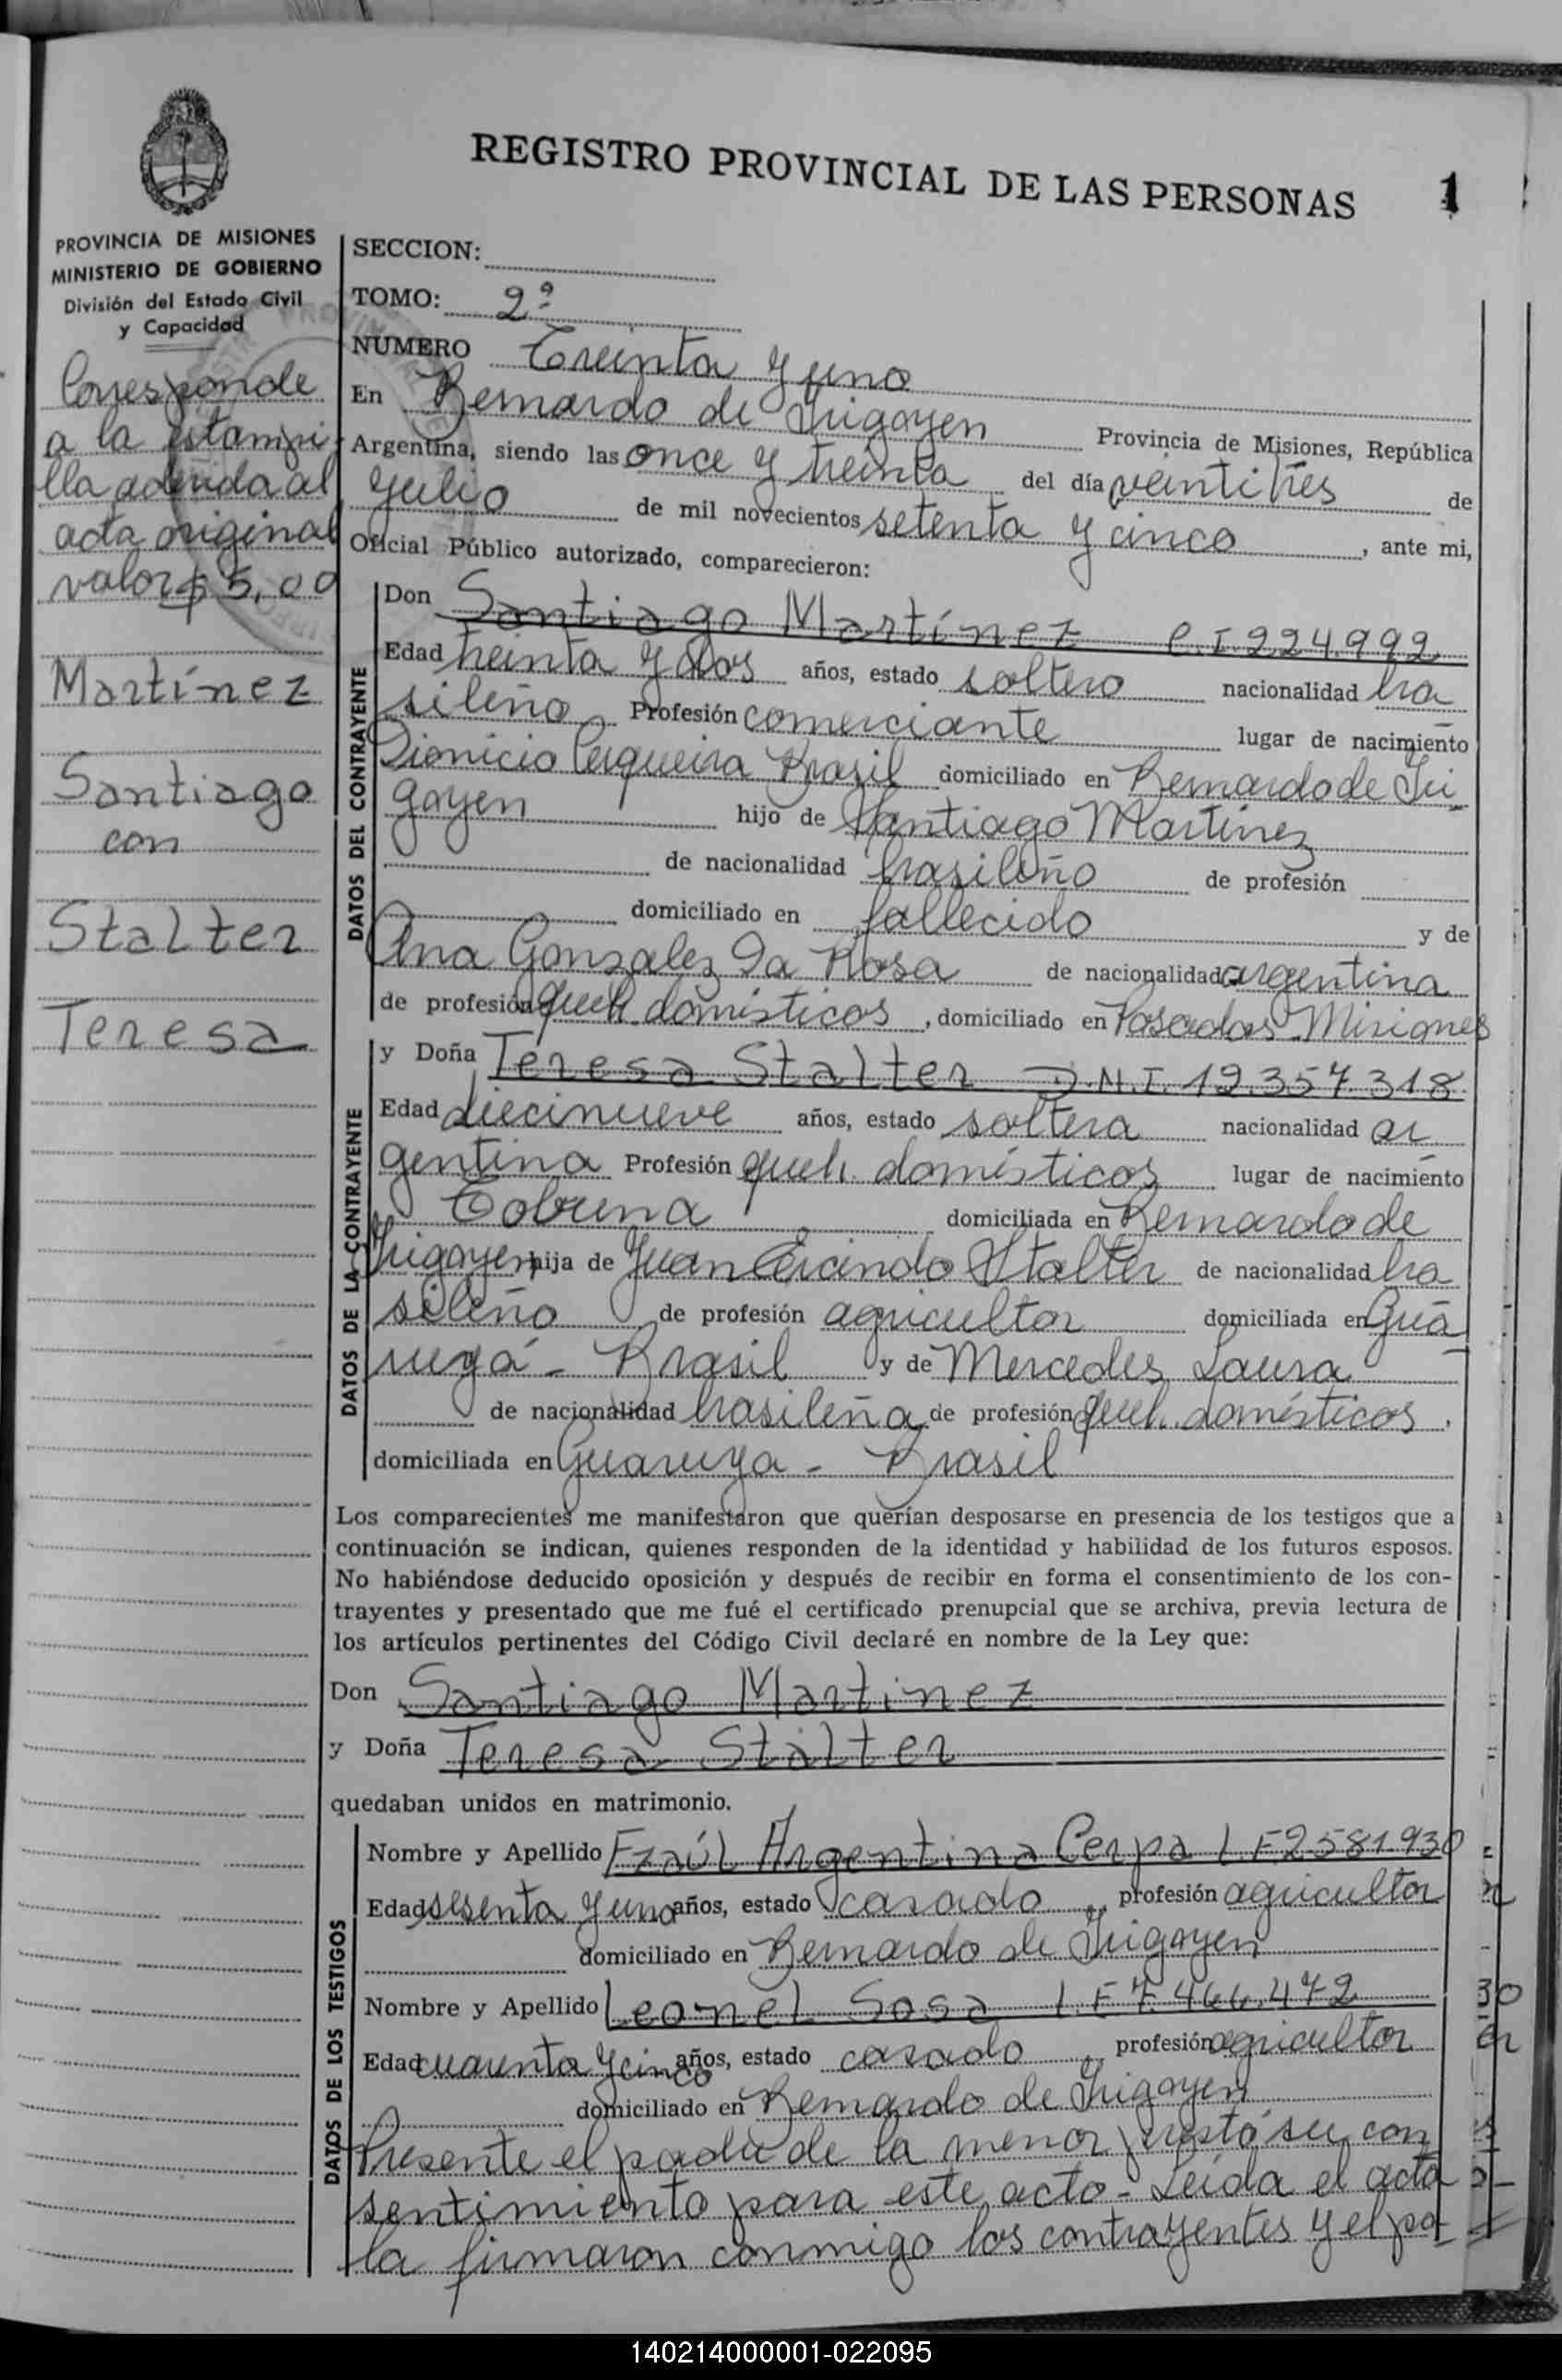 REGISTRO PROVINCIAL DE LAS PERSONAS 1
PROVINCIA DE MISIONES
MINISTERIO DE GOBIERNO
División del Estado Civil
y Capacidad
Corresponde
a la estampi
lla adherida al
acta original
valor $ 5,00
Martínez
Santiago
con
Stalter
Teresa
SECCION:
TOMO: 2º
NUMERO Treinta y uno
En Bernardo de Irigoyen Provincia de Misiones, República
Argentina, siendo las once y treinta del día veintitrés de
Julio de mil novecientos setenta y cinco, ante mi,
Oficial Público autorizado, comparecieron:
DATOS DEL CONTRAYENTE
Don Santiago Martínez C.I. 224.992
Edad treinta y dos años, estado soltero nacionalidad bra
sileño Profesión comerciante lugar de nacimiento
Dionicio Cerqueira Brasil domiciliado en Bernardo de Iri
goyen hijo de Santiago Martínez
de nacionalidad brasileño de profesión
domiciliado en fallecido y de
Ana Gonzalez Da Rosa de nacionalidad argentina
de profesión queh. domésticos, domiciliado en Posadas Misiones
DATOS DE LA CONTRAYENTE
y Doña Teresa Stalter D.N.I. 12.357.318
Edad diecinueve años, estado soltera nacionalidad ar
gentina Profesión queh. domésticos lugar de nacimiento
Tobuna domiciliada en Bernardo de
Irigoyen hija de Juan Stalter de nacionalidad bra
sileño de profesión agricultor domiciliada en Gua
ruyá - Brasil y de Mercedes Laura
de nacionalidad brasileña de profesión queh. domésticos,
domiciliada en Guaruya - Brasil
Los comparecientes me manifestaron que querían desposarse en presencia de los testigos que a
continuación se indican, quienes responden de la identidad y habilidad de los futuros esposos.
No habiéndose deducido oposición y después de recibir en forma el consentimiento de los con-
trayentes y presentado que me fué el certificado prenupcial que se archiva, previa lectura de
los artículos pertinentes del Código Civil declaré en nombre de la Ley que:
Don Santiago Martinez
y Doña Teresa Stalter
quedaban unidos en matrimonio.
DATOS DE LOS TESTIGOS
Nombre y Apellido Argentina Cerpa L.E 2.581.930
Edad sesenta y uno años, estado casado, profesión agricultor
domiciliado en Bernardo de Irigoyen
Nombre y Apellido Leonel Sosa L.E 7.466.472
Edad cuarenta y cinco años, estado casado, profesión agricultor
domiciliado en Bernardo de Irigoyen
Presente el padre de la menor prestó su con
sentimiento para este acto - Leída el acta
la firmaron conmigo los contrayentes y el pa-
140214000001-022095